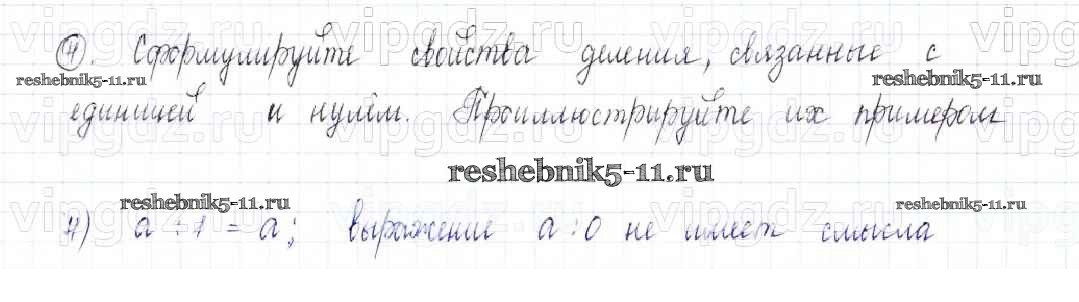 ④. Сформулируйте свойства деления, связанные с
reshebnik5-11.ru reshebnik5-11.ru
единицей и нулём. Проиллюстрируйте их примером
reshebnik5-11.ru
reshebnik5-11.ru reshebnik5-11.ru
4) a ÷ 1 = a; выражение a : 0 не имеет смысла
vipgdz.ru vipgdz.ru vipgdz.ru